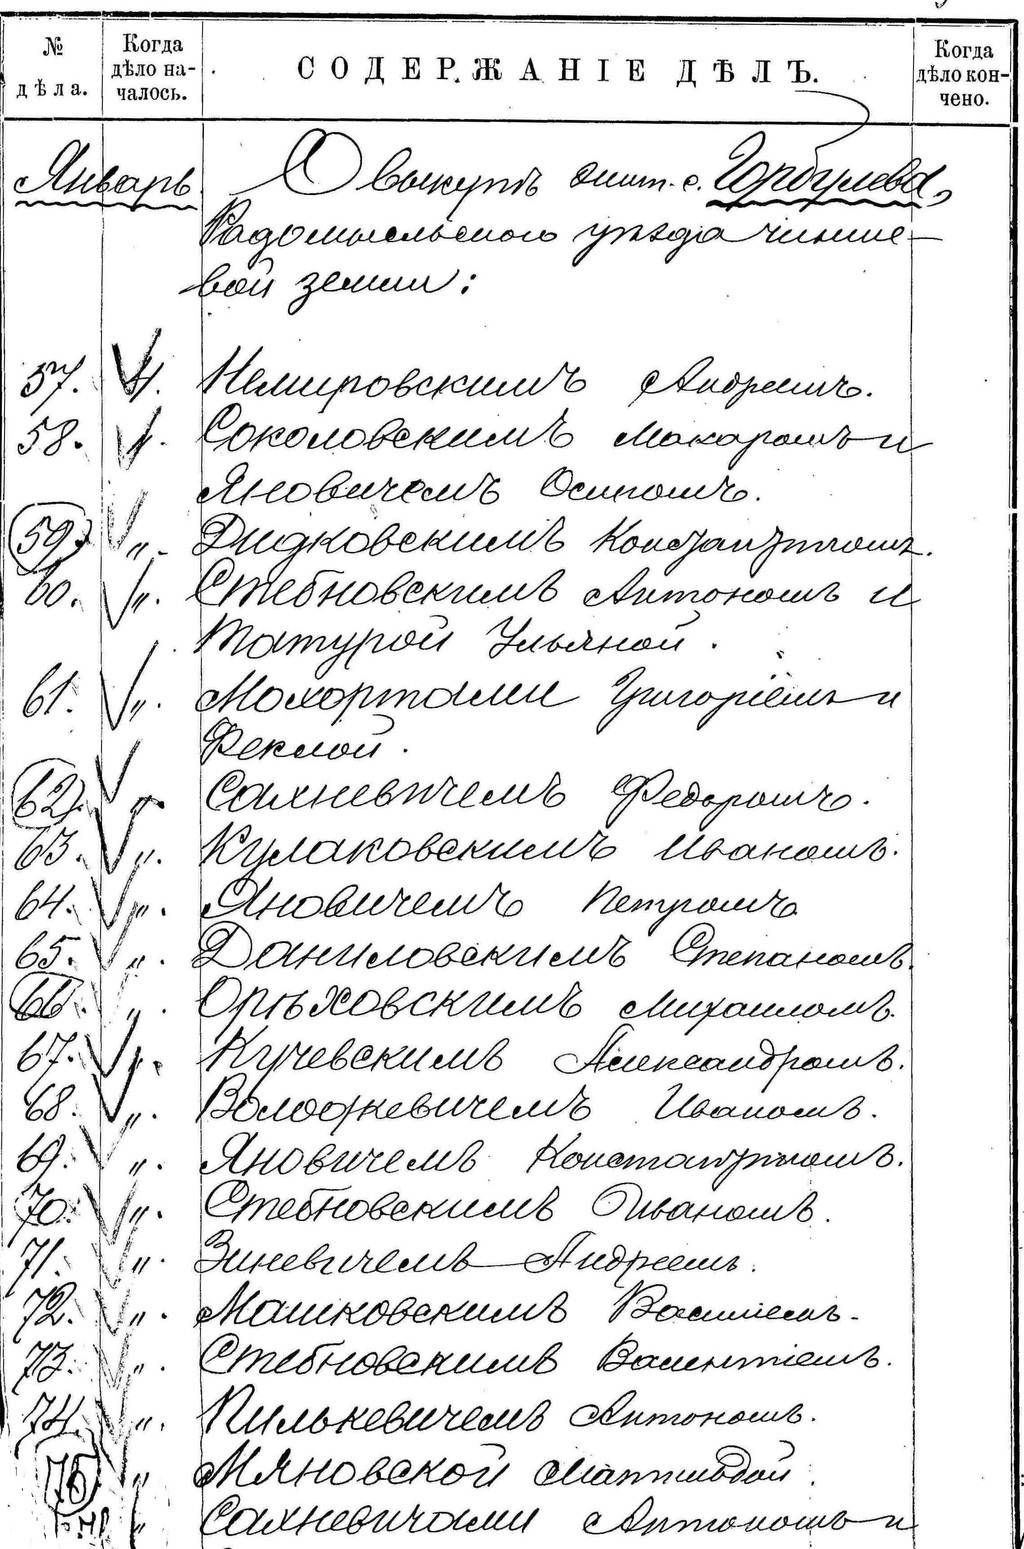 № дѣла. Когда дѣло началось. СОДЕРЖАНІЕ ДѢЛЪ. Когда дѣло кончено.
Январь. О выкупѣ жит. с. Горбулева,
Радомысльскаго уѣзда чинше-
вой земли:
57. 4. Немировскимъ Андреемъ.
58. ". Соколовскимъ Макаромъ и
Яновичемъ Осипомъ.
59. ". Дидковскимъ Константиномъ.
60. ". Стебновскимъ Антономъ и
Татурой Ульяной.
61. ". Мохортами Григоріемъ и
Феклой.
62. ". Сахневичемъ Федоромъ.
63. ". Кулаковскимъ Иваномъ.
64. ". Яновичемъ Петромъ
65. ". Даниловскимъ Степаномъ.
66. ". Орѣховскимъ Михаиломъ.
67. ". Кучевскимъ Александромъ.
68. ". Володкевичемъ Иваномъ.
69. ". Яновичемъ Константиномъ.
70. ". Стебновскимъ Иваномъ.
71. ". Зиневичемъ Андреемъ.
72. ". Машковскимъ Василіемъ.
73. ". Стебновскимъ Валентіемъ.
74. ". Пилькевичемъ Антономъ.
75 " Мяновской Матильдой.
" Сахневичами Антономъ и